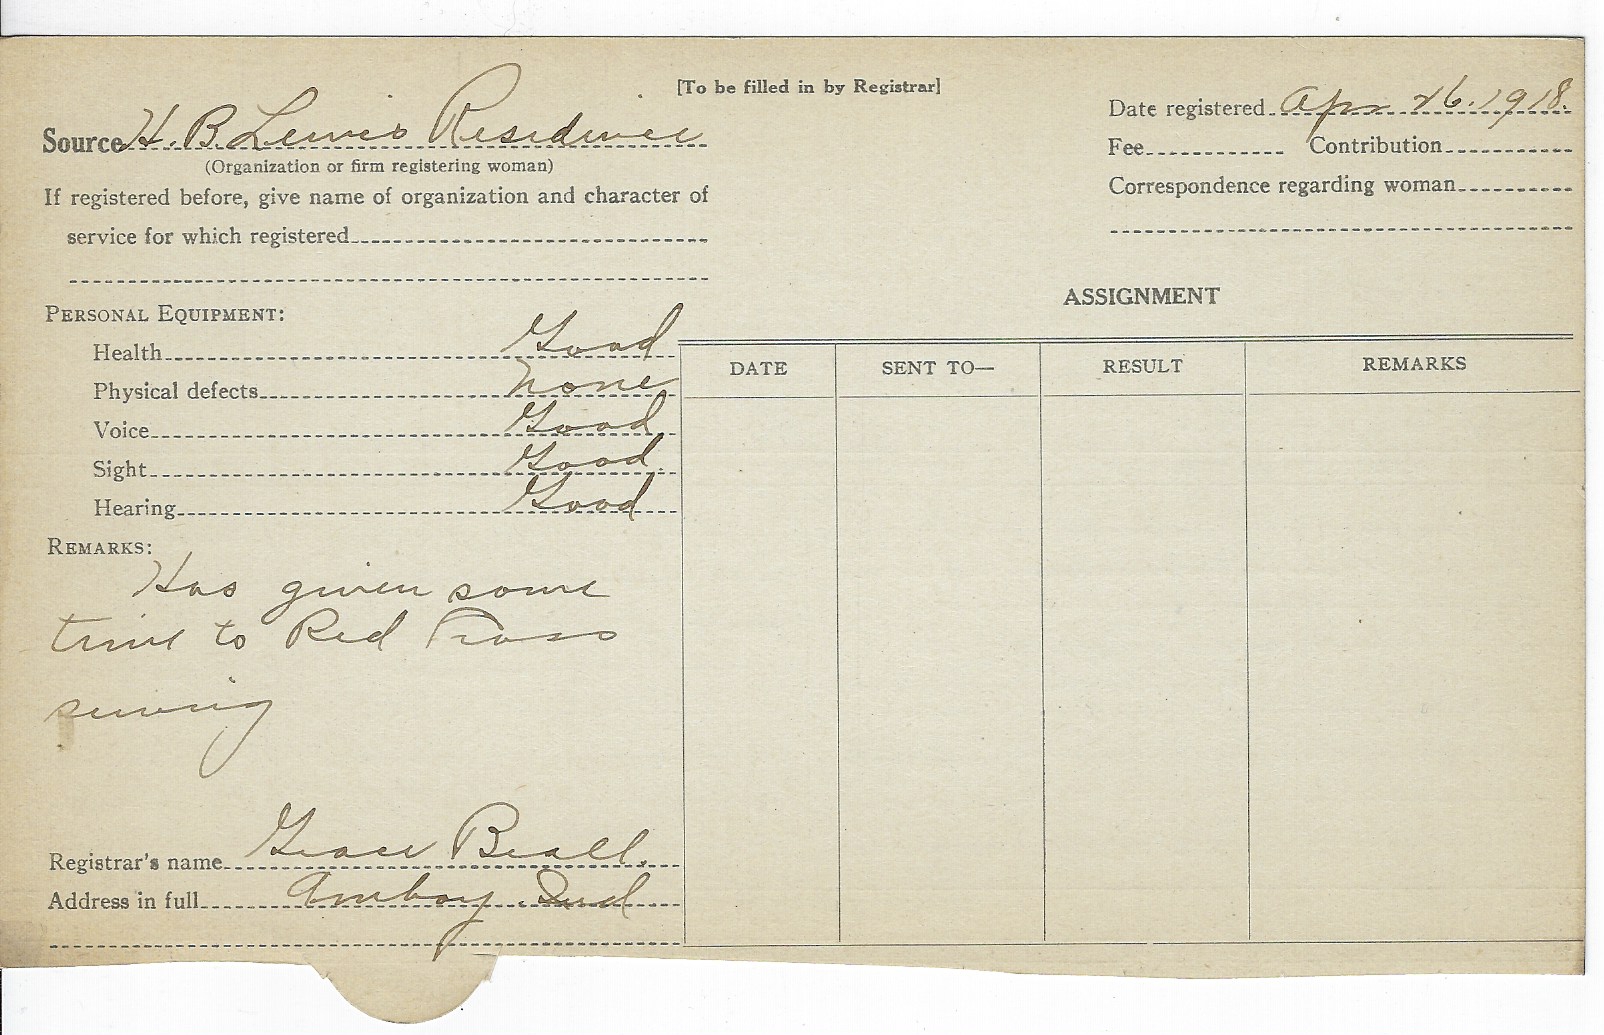 [To be filled in by Registrar]
Source H. B Lewis Residence
(Organization or firm registering woman)
If registered before, give name of organization and character of
service for which registered
Date registered Apr 26. 1918.
Fee Contribution
Correspondence regarding woman
PERSONAL EQUIPMENT:
Health Good
Physical defects none
Voice Good
Sight Good.
Hearing Good
REMARKS:
Has given some
time to Red Cross
sewing
Registrar's name Grace Beall.
Address in full Amboy. Ind
ASSIGNMENT
DATE SENT TO— RESULT REMARKS